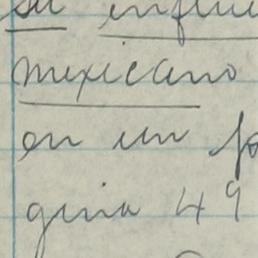 su influe
mexicano
en un fo
gina 49